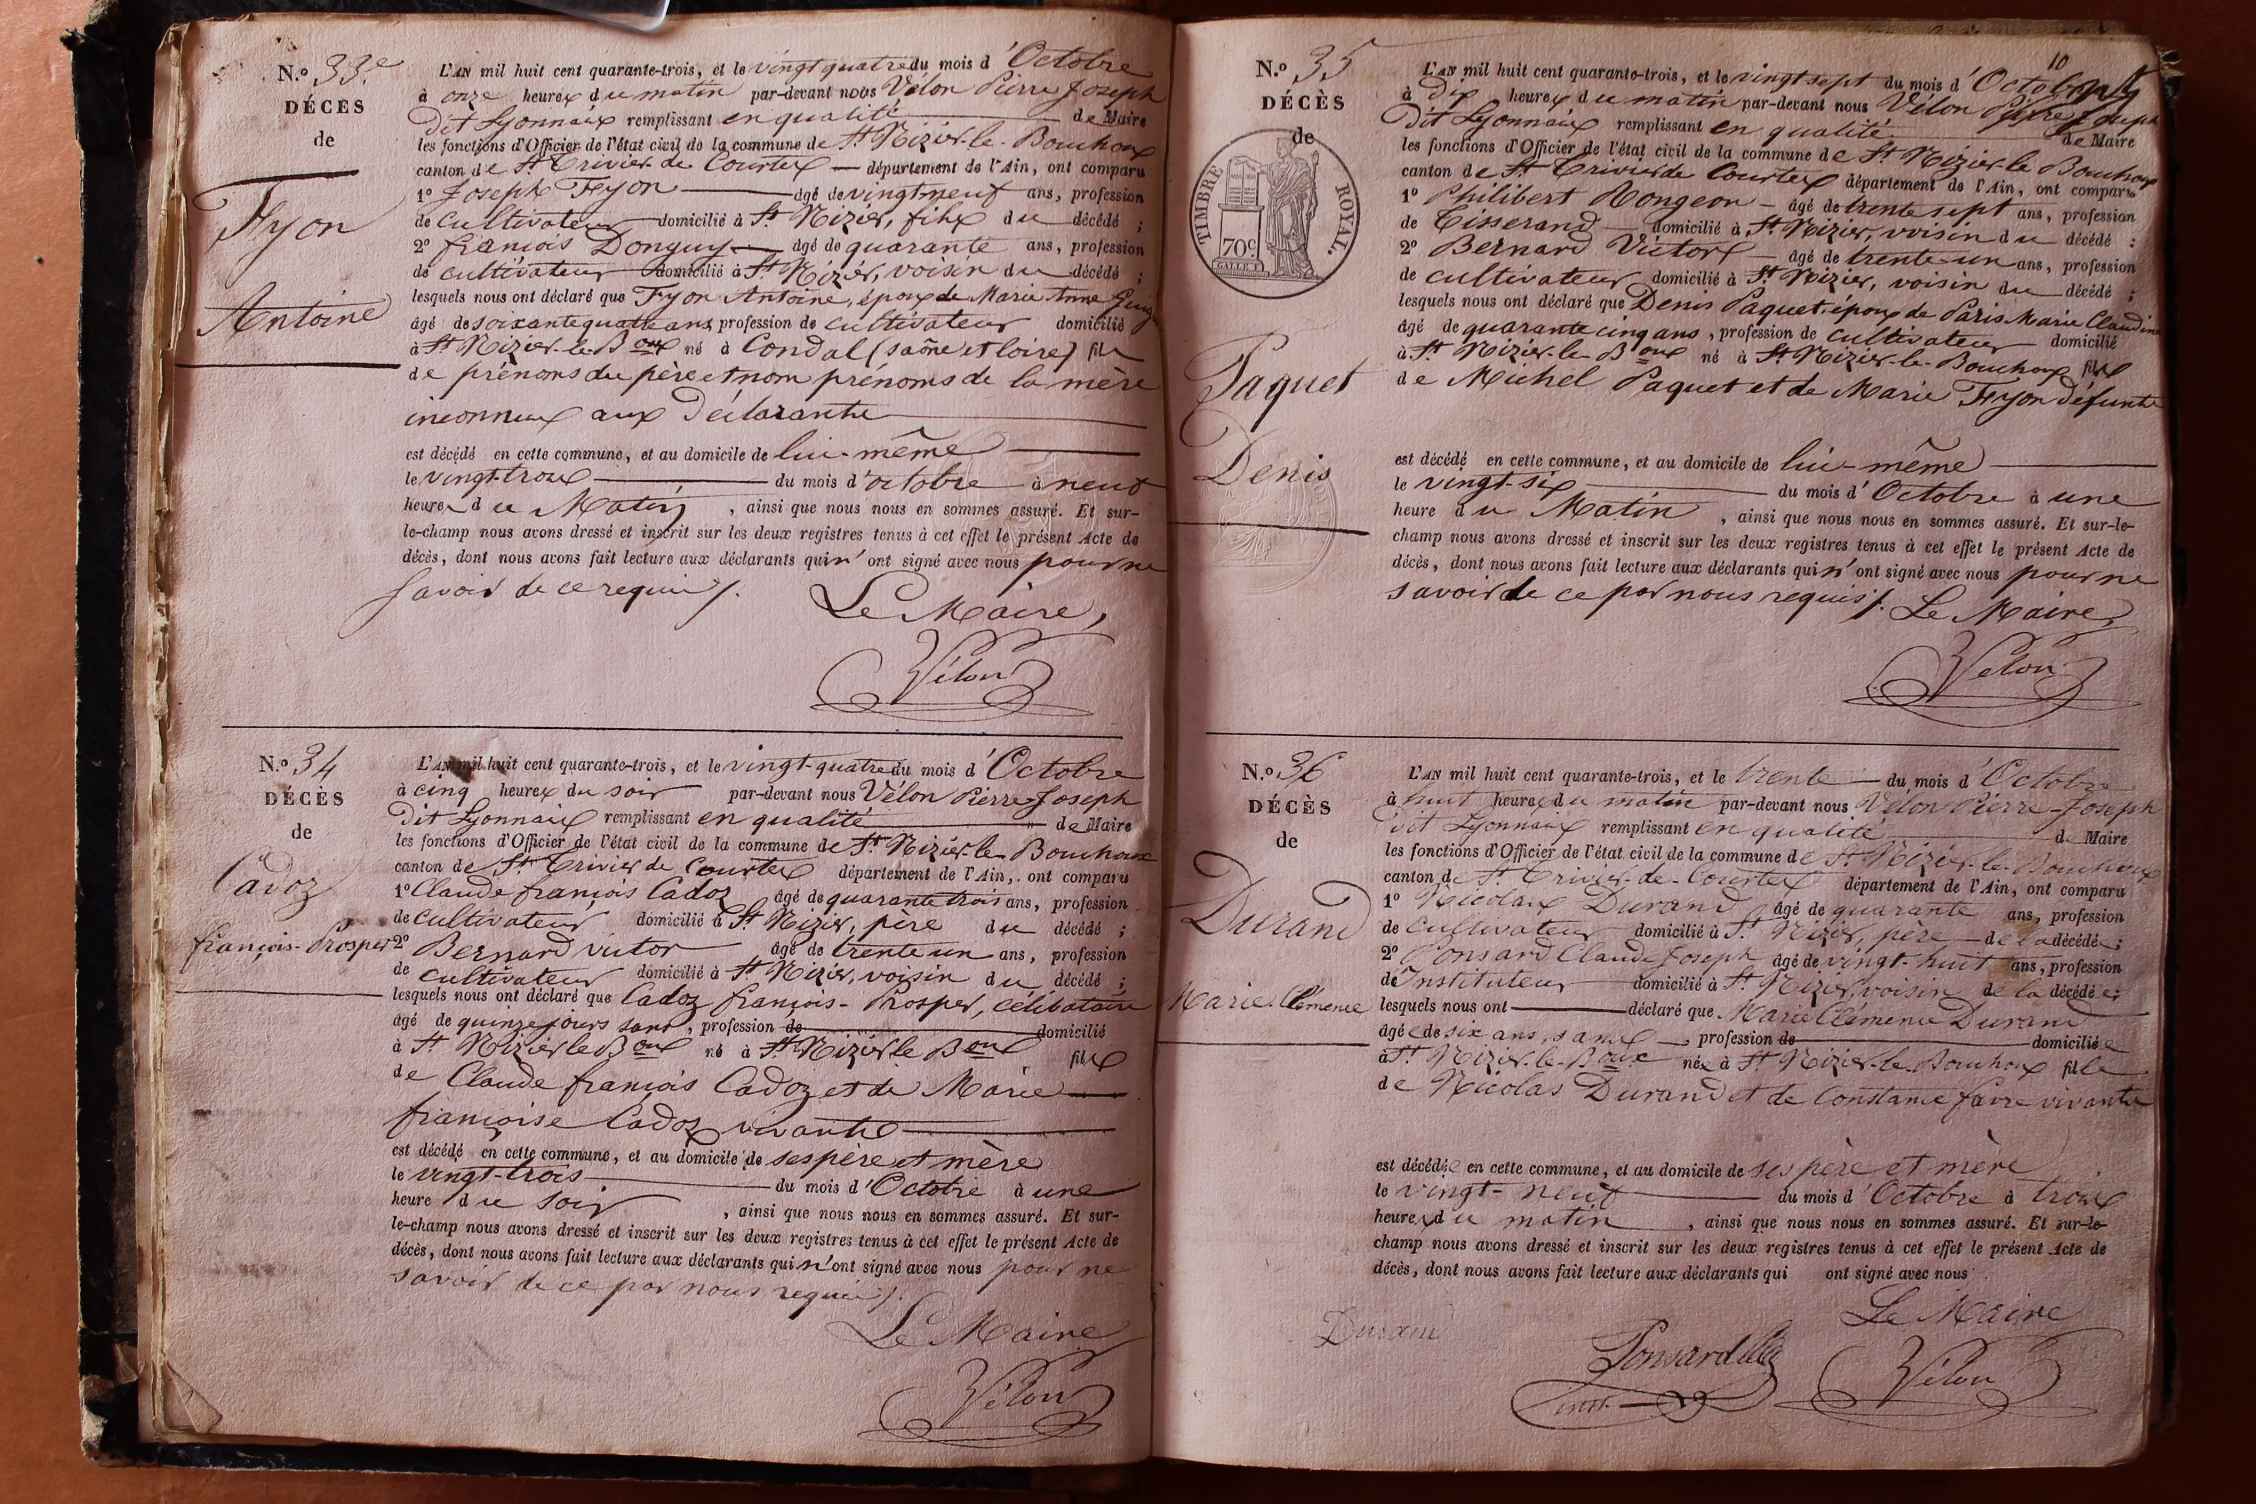 N.º 33e
DÉCÈS
de
Fyon
Antoine
L'AN mil huit cent quarante-trois, et le vingt quatre du mois d'Octobre
à onze heures du matin par-devant nous Vélon Pierre Joseph
dit Lyonnaix remplissant en qualité de Maire
les fonctions d'Officier de l'état civil de la commune de St Nizier-le-Bouchoux
canton de St Trivier de Courtex département de l'Ain, ont comparu
1º Joseph Fyon âgé de vingt neuf ans, profession
de cultivateur domicilié à St Nizier, fils du décédé ;
2º françois Donguy âgé de quarante ans, profession
de cultivateur domicilié à St Nizier, voisin du décédé ;
lesquels nous ont déclaré que Fyon Antoine, époux de Marie Anne
âgé de soixante quatre ans profession de cultivateur domicilié
à St Nizier-le-Boux né à Condal (saône et loire) fils
de prénoms du père et nom prénoms de la mère
inconnus aux déclarants
est décédé en cette commune, et au domicile de lui-même
le vingt-trois du mois d'octobre à neuf
heures du Matin, ainsi que nous nous en sommes assuré. Et sur-
le-champ nous avons dressé et inscrit sur les deux registres tenus à cet effet le présent Acte de
décès, dont nous avons fait lecture aux déclarants qui n'ont signé avec nous pour ne
savoir de ce requis /.
Le Maire,
Vélon
N.º 34
DÉCÈS
de
Cadoz
françois-Prosper
L'AN mil huit cent quarante-trois, et le vingt-quatre du mois d'Octobre
à cinq heures du soir par-devant nous Vélon Pierre Joseph
dit Lyonnaix remplissant en qualité de Maire
les fonctions d'Officier de l'état civil de la commune de St Nizier-le-Bouchoux
canton de St Trivier de Courtex département de l'Ain, ont comparu
1º Claude françois Cadoz âgé de quarante trois ans, profession
de cultivateur domicilié à St Nizier, père du décédé ;
2º Bernard victor âgé de trente un ans, profession
de cultivateur domicilié à St Nizier, voisin du décédé ;
lesquels nous ont déclaré que Cadoz françois-Prosper, célibataire
âgé de quinze jours sans, profession de domicilié
à St Nizier le Boux né à St Nizier le Boux fils
de Claude françois Cadoz et de Marie
françoise Cadoz vivants
est décédé en cette commune, et au domicile de ses père et mère
le vingt-trois du mois d'Octobre à une
heure du soir, ainsi que nous nous en sommes assuré. Et sur-
le-champ nous avons dressé et inscrit sur les deux registres tenus à cet effet le présent Acte de
décès, dont nous avons fait lecture aux déclarants qui n'ont signé avec nous pour ne
savoir de ce par nous requis /.
Le Maire
Vélon
10
N.º 35
DÉCÈS
de
TIMBRE ROYAL.
70c
Paquet
Denis
L'AN mil huit cent quarante-trois, et le vingt sept du mois d'Octobre
à dix heures du matin par-devant nous Vélon Pierre Joseph
dit Lyonnaix remplissant en qualité de Maire
les fonctions d'Officier de l'état civil de la commune de St Nizier le Bouchoux
canton de St Trivier de Courtex département de l'Ain, ont comparu
1º Philibert Rongeon âgé de trente sept ans, profession
de Tisserand domicilié à St Nizier, voisin du décédé ;
2º Bernard Victor âgé de trente-un ans, profession
de cultivateur domicilié à St Nizier, voisin du décédé ;
lesquels nous ont déclaré que Denis Paquet, époux de Paris Marie Claudine
âgé de quarante cinq ans, profession de cultivateur domicilié
à St Nizier-le-Boux né à St Nizier-le-Bouchoux fils
de Michel Paquet et de Marie Fyon défunts
est décédé en cette commune, et au domicile de lui-même
le vingt-six du mois d'Octobre à une
heure du Matin, ainsi que nous nous en sommes assuré. Et sur-le-
champ nous avons dressé et inscrit sur les deux registres tenus à cet effet le présent Acte de
décès, dont nous avons fait lecture aux déclarants qui n'ont signé avec nous pour ne
savoir de ce par nous requis /. Le Maire,
Vélon
N.º 36
DÉCÈS
de
Durand
Marie Clémence
L'AN mil huit cent quarante-trois, et le trente du mois d'Octobre
à huit heures du matin par-devant nous Vélon Pierre-Joseph
dit Lyonnaix remplissant en qualité de Maire
les fonctions d'Officier de l'état civil de la commune de St Nizier-le-Bouchoux
canton de St Trivier-de-Courtex département de l'Ain, ont comparu
1º Nicolas Durand âgé de quarante ans, profession
de cultivateur domicilié à St Nizier, père de la décédée ;
2º Ponsard Claude Joseph âgé de vingt-huit ans, profession
de Instituteur domicilié à St Nizier, voisin de la décédée ;
lesquels nous ont déclaré que Marie Clémence Durand
âgée de six ans, sans profession de domiciliée
à St Nizier-le-Boux née à St Nizier-le-Bouchoux fille
de Nicolas Durand et de Constance favre vivants
est décédée en cette commune, et au domicile de ses père et mère
le vingt-neuf du mois d'Octobre à trois
heures du matin, ainsi que nous nous en sommes assuré. Et sur-le-
champ nous avons dressé et inscrit sur les deux registres tenus à cet effet le présent Acte de
décès, dont nous avons fait lecture aux déclarants qui ont signé avec nous
Le Maire
Durand
Ponsard
inst.
Vélon